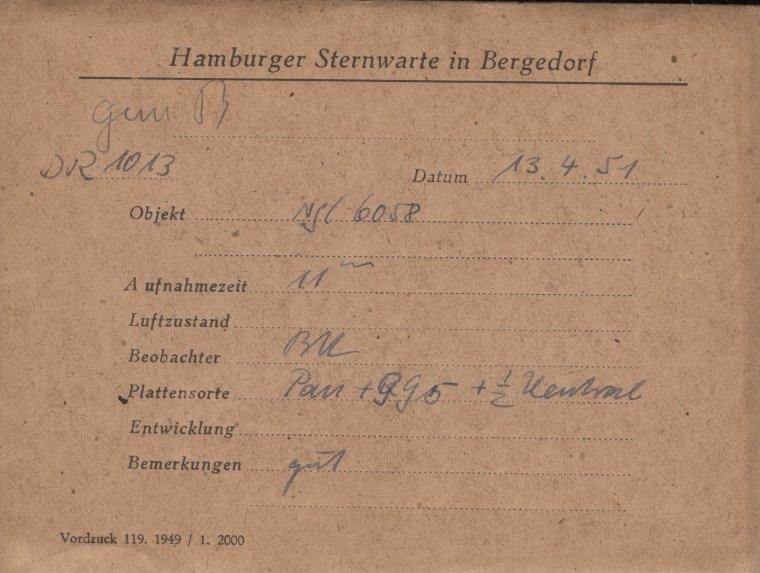 Hamburger Sternwarte in Bergedorf
gem B
DR 1013 Datum 13.4.51
Objekt NGC 6058
Aufnahmezeit 11m
Luftzustand
Beobachter
Plattensorte Pan + GG5 + ½ Neutral
Entwicklung
Bemerkungen gut
Vordruck 119. 1949 / 1. 2000